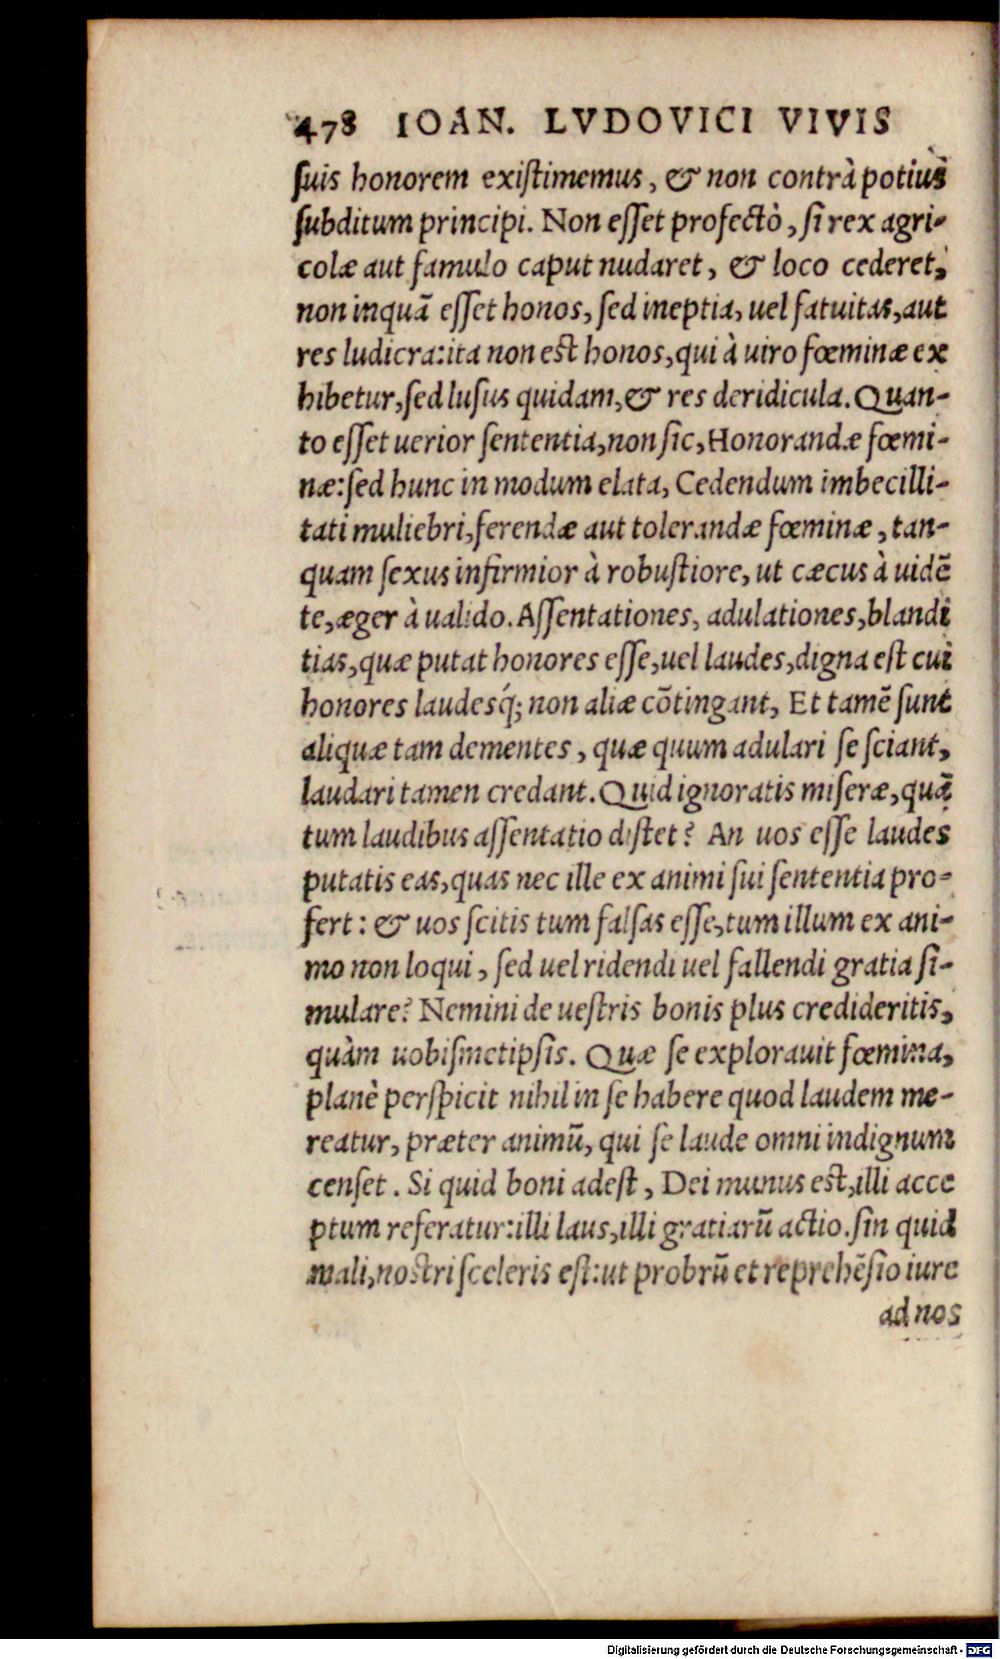 478 IOAN. LVDOVICI VIVIS
ſuis honorem exiſtimemus, & non contrà potius
ſubditum principi. Non eſſet profectò, ſi rex agri-
colæ aut famulo caput nudaret, & loco cederet,
non inquā eſſet honos, ſed ineptia, uel fatuitas, aut
res ludicra: ita non eſt honos, qui à uiro fœminæ ex
hibetur, ſed luſus quidam, & res deridicula. Quan-
to eſſet uerior ſententia, non ſic, Honorandæ fœmi-
næ: ſed hunc in modum elata, Cedendum imbecilli-
tati muliebri, ferendæ aut tolerandæ fœminæ, tan-
quam ſexus infirmior à robuſtiore, ut cæcus à uidē
te, æger à ualido. Aſſentationes, adulationes, blandi
tias, quæ putat honores eſſe, uel laudes, digna eſt cui
honores laudesq́; non aliæ cōtingant, Et tamē ſunt
aliquæ tam dementes, quæ quum adulari ſe ſciant,
laudari tamen credant. Quid ignoratis miſeræ, quā
tum laudibus aſſentatio diſtet? An uos eſſe laudes
putatis eas, quas nec ille ex animi ſui ſententia pro-
fert: & uos ſcitis tum falſas eſſe, tum illum ex ani-
mo non loqui, ſed uel ridendi uel fallendi gratia ſi-
mulare? Nemini de ueſtris bonis plus credideritis,
quàm uobiſmetipſis. Quæ ſe explorauit fœmina,
planè perſpicit nihil in ſe habere quod laudem me-
reatur, præter animū, qui ſe laude omni indignum
cenſet. Si quid boni adeſt, Dei munus eſt, illi acce
ptum referatur: illi laus, illi gratiarū actio. ſin quid
mali, noſtri ſceleris eſt: ut probrū et reprehēſio iure
ad nos
Digitalisierung gefördert durch die Deutsche Forschungsgemeinschaft - DFG